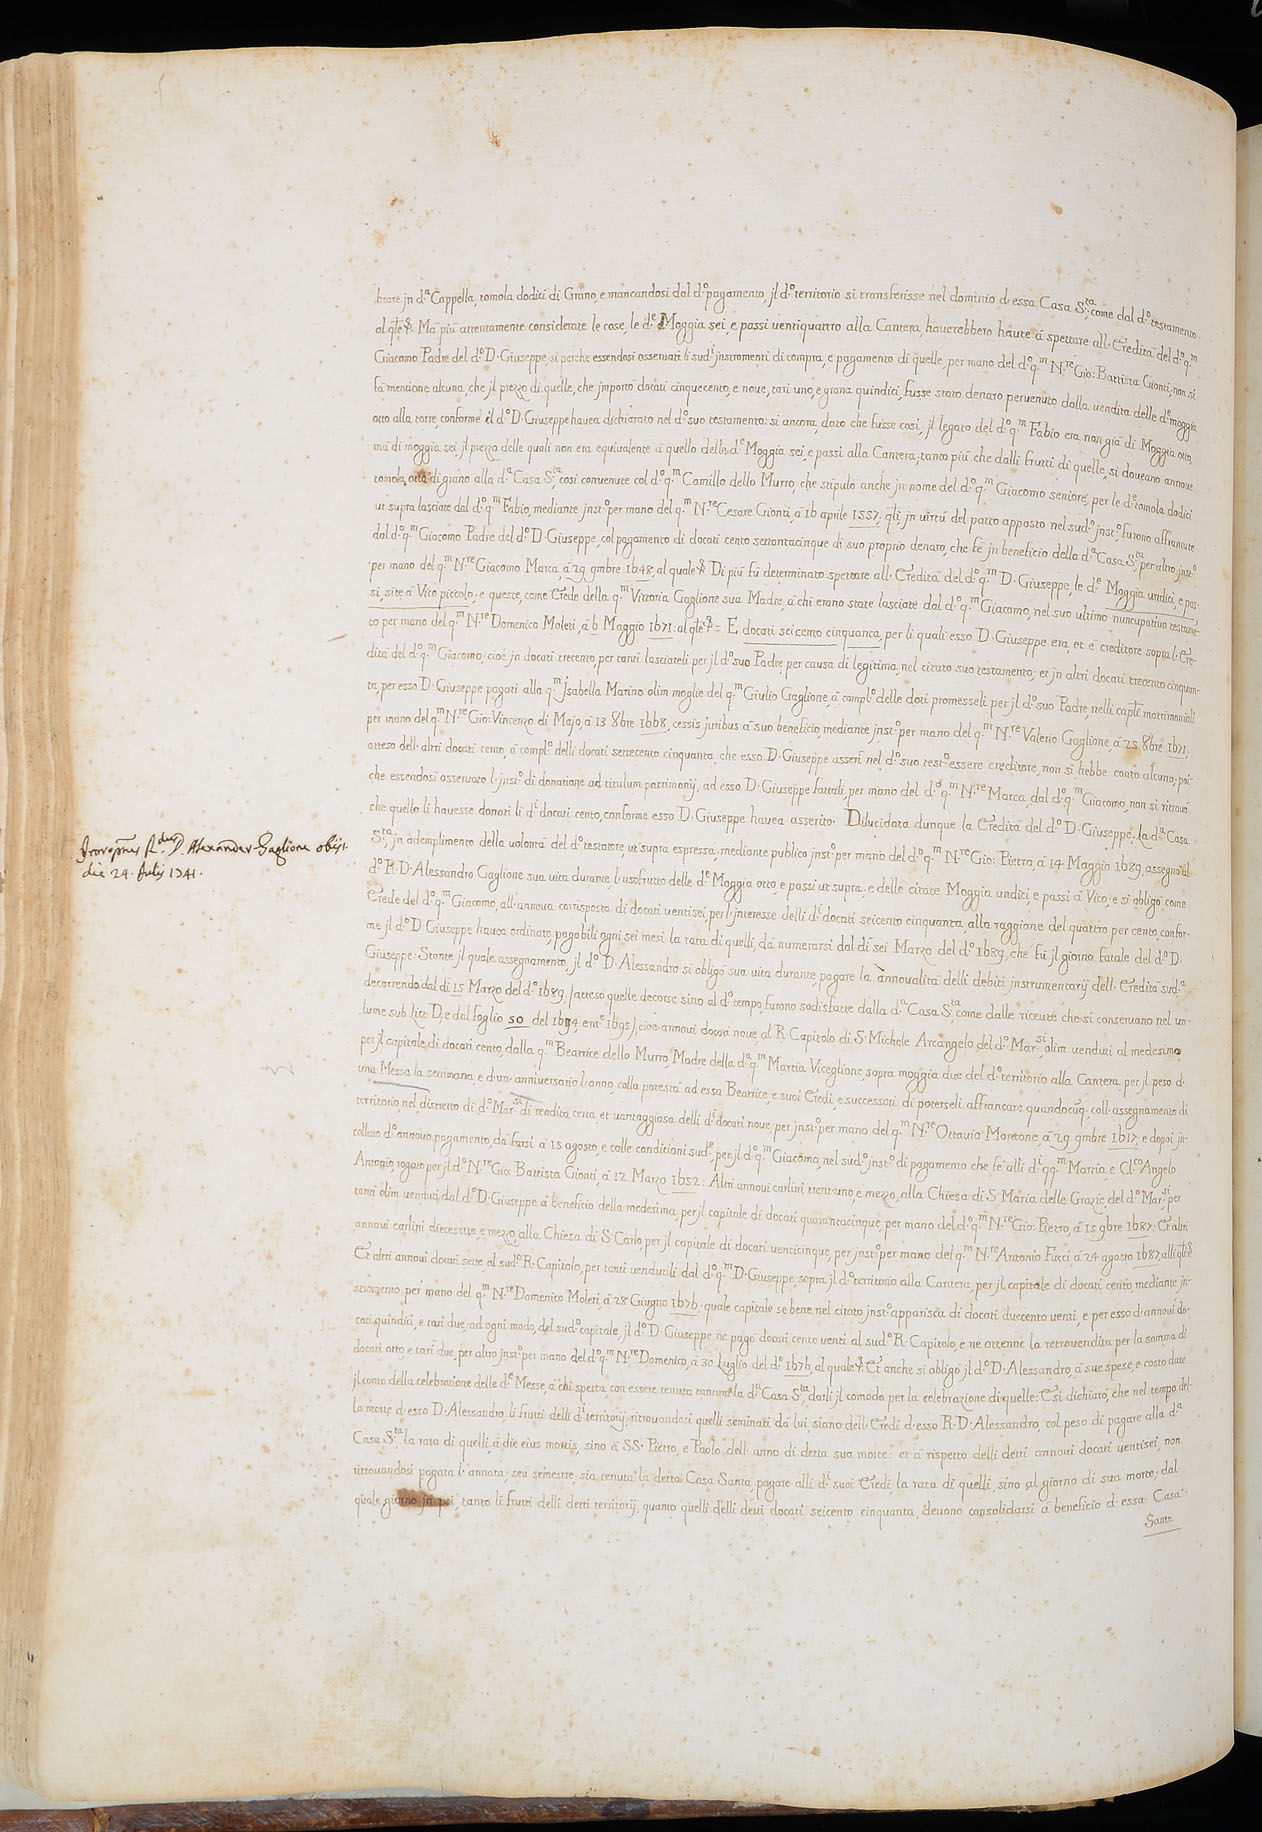 brare jn d.ª Cappella, tomola dodici di Grano, e mancandosi dal d.º pagamento, jl d.º territorio si transferisse nel dominio d'essa Casa S.ta; come dal d.º testamento
al q.le &. Mà più attentamente considerate le cose, le d.e Moggia sei, e passi uentiquattro alla Cantera, hauerebbero haute à spettare all'Eredità del d.º q.m
Giacomo Padre del d.º D. Giuseppe, si perche essendosi osseruati li sud.i jnstromenti di compra, e pagamento di quelle, per mano del d.º q.m N.re Gio: Battista Gionti, non si
fà mentione alcuna, che jl prezzo di quelle, che jmportà docati cinquecento, e noue, tarì uno, e grana quindici, fusse stato denaro peruenuto dalla uendita delle d.e moggia
otto alla torre conforme il d.º D. Giuseppe hauea dichiarato nel d.º suo testamento: si ancora, dato che fusse così, jl legato del d.º q.m Fabio era non già di Moggia otto,
mà di moggia sei, jl prezzo delle quali non era equiualente à quello delle d.e Moggia sei, e passi alla Cantera; tanto più che dalli frutti di quelle, si doueano annoue
tomola otto di grano alla d.ª Casa S.ta, così conuenute col d.º q.m Camillo dello Murro, che stipulò anche jn nome del d.º q.m Giacomo seniore, per le d.e tomola dodici
ut supra lasciate dal d.º q.m Fabio, mediante jnst.º per mano del q.m N.re Cesare Gionti, à 16 aprile 1557; q.li, jn uirtù del patto apposto nel sud.º jnst.º, furono affrancate
dal d.º q.m Giacomo Padre del d.º D. Giuseppe, col pagamento di docati cento settantacinque di suo proprio denaro, che fè jn beneficio della d.ª Casa S.ta, per altro jnst.º
per mano del q.m N.re Giacomo Marca, à 29 9mbre 1648, al quale & Di più fù determinato spettare all'Eredità del d.º q.m D. Giuseppe, le d.e Moggia undici, e pas-
si, site à Vico piccolo, e queste, come Erede della q.m Vittoria Gaglione sua Madre, à chi erano state lasciate dal d.º q.m Giacomo, nel suo ultimo nuncupatiuo testame-
to per mano del q.m N.re Domenico Moleti, à 6 Maggio 1671: al q.le & = E docati seicento cinquanta, per li quali esso D. Giuseppe era, et è creditore sopra l'Ere-
dità del d.º q.m Giacomo; cioè, jn docati trecento, per tanti lasciateli per jl d.º suo Padre, per causa di legitima, nel citato suo testamento; et jn altri docati trecento cinquan-
ta, per esso D. Giuseppe pagati alla q.m Jsabella Marino olim moglie del q.m Giulio Gaglione, à compl.º delle doti promesseli per jl d.º suo Padre, nelli cap.li matrimoniali
per mano del q.m N.re Gio: Vincenzo di Majo, à 13 8bre 1668, cessis juribus à suo beneficio, mediante jnst.º per mano del q.m N.re Valerio Gaglione, à 25 8bre 1671,
atteso dell'altri docati cento, à compl.º delli docati settecento cinquanta, che esso D. Giuseppe asserì nel d.º suo test.º essere creditore, non si hebbe conto alcuno; poi-
che essendosi osseruato l'jnst.º di donatione ad titulum patrimonij, ad esso D. Giuseppe fattali, per mano del d.º q.m N.re Marca, dal d.º q.m Giacomo, non si ritrouà
che quello li hauesse donati li d.i docati cento, conforme esso D. Giuseppe hauea asserito. Dilucidata dunque la Eredità del d.º D. Giuseppe; la d.ª Casa
S.ta, jn adempimento della uolontà del d.º testatore, ut supra espressa, mediante publico jnst.º per mano del d.º q.m N.re Gio: Pietro, à 14 Maggio 1689, assegnò al
d.º R. D. Alessandro Gaglione sua uita durante, l'usofrutto delle d.e Moggia otto, e passi ut supra, e delle citate Moggia undici, e passi à Vico; e si obligò come
Erede del d.º q.m Giacomo, all'annoua corrisposta di docati uentisei, per l'jnteresse delli d.i docati seicento cinquanta, alla raggione del quattro per cento, confor-
me jl d.º D. Giuseppe hauea ordinato, pagabili ogni sei mesi la rata di quelli, dà numerarsi dal dì sei Marzo del d.º 1689, che fù jl giorno fatale del d.º D.
Giuseppe: Stante jl quale assegnamento, jl d.º D. Alessandro si obligò sua uita durante, pagare la annoualità delli debiti jnstrumentarij dell'Eredità sud.ª
decorrendo dal dì 15 Marzo del d.º 1689, /atteso quelle decorse sino al d.º tempo, furono sodisfatte dalla d.ª Casa S.ta, come dalle riceute che si conseruano nel uo-
lume sub litt. D, e dal foglio 50 del 1694, ent.e 1695/, cioè annoui docati noue al R. Capitolo di S. Michele Arcangelo del d.º Mar.si, olim uenduti al medesimo,
per jl capitale di docati cento, dalla q.m Beatrice dello Murro, Madre della d.ª q.m Martia Viceglione, sopra moggia due del d.º territorio alla Cantera, per jl peso d'
una Messa la settimana, e d'un'anniuersario l'anno, colla potestà ad essa Beatrice, e suoi Eredi, e successori di poterseli affrancare quandocuq; coll'assegnamento di
territorio, nel distretto di d.º Mar.si di rendita certa, et uantaggiosa delli d.i docati noue, per jnst.º per mano del q.m N.re Ottauio Montone, à 29 9mbre 1617; e dopoi jn-
collato d.º annouo pagamento, dà farsi à 15 agosto, e colle conditioni sud.e, per jl d.º q.m Giacomo, nel sud.º jnst.º di pagamento che fè alli d.i qq.m Martia, e Cl.co Angelo
Antonio, rogato per jl d.º N.re Gio: Battista Gionti, à 12 Marzo 1652: Altri annoui carlini trent'uno, e mezzo, alla Chiesa di S. Maria delle Grazie del d.º Mar.si, per
tanti olim uenduti dal d.º D. Giuseppe à beneficio della medesima, per jl capitale di docati quarantacinque, per mano del d.º q.m N.re Gio: Pietro, à 15 9bre 1687: Et altri
annoui carlini diecesette, e mezzo, alla Chiesa di S. Carlo, per jl capitale di docati uenticinque, per jnst.º per mano del q.m N.re Antonio Fucci, à 24 agosto 1687, alli q.li &
Et altri annoui docati sette, al sud.º R. Capitolo, per tanti uendutili dal d.º q.m D. Giuseppe, sopra jl d.º territorio alla Cantera, per jl capitale di docati cento, mediante jn-
stromento per mano del q.m N.re Domenico Moleti, à 28 Giugno 1676, quale capitale se bene nel citato jnst.º apparisca di docati duecento uenti, e per esso d'annoui do-
cati quindici, e tarì due; ad ogni modo, del sud.º capitale, jl d.º D. Giuseppe ne pagò docati cento uenti al sud.º R. Capitolo, e ne ottenne la retrouendita per la somma di
docati otto, e tarì due, per altro jnst.º per mano del d.º q.m N.re Domenico, à 30 Luglio del d.º 1676, al quale &. Et anche si obligò jl d.º D. Alessandro, à sue spese, e costo dare
jl conto della celebratione delle d.e Messe, à chi spetta, con essere tenuta tantum la d.ª Casa S.ta, darli jl comodo per la celebrazione di quelle: E si dichiarò, che nel tempo del-
la morte d'esso D. Alessandro, li frutti delli d.i territorij, ritrouandosi quelli seminati dà lui, siano dell'Eredi d'esso R. D. Alessandro, col peso di pagare alla d.ª
Casa S.ta la rata di quelli, à die eius mortis, sino à SS. Pietro, e Paolo dell'anno di detta sua morte: et à rispetto delli detti annoui docati uentisei, non
ritrouandosi pagata l'annata, seu semestre, sia tenuta la detta Casa Santa, pagare alli d.i suoi Eredi, la rata di quelli, sino al giorno di sua morte; dal
quale giorno jn poi, tanto li frutti delli detti territorij, quanto quelli delli detti docati seicento cinquanta, deuono consolidarsi à beneficio d'essa Casa
Santa
R.dus D. Alexander Gaglione obijt
die 24. Julij 1741.